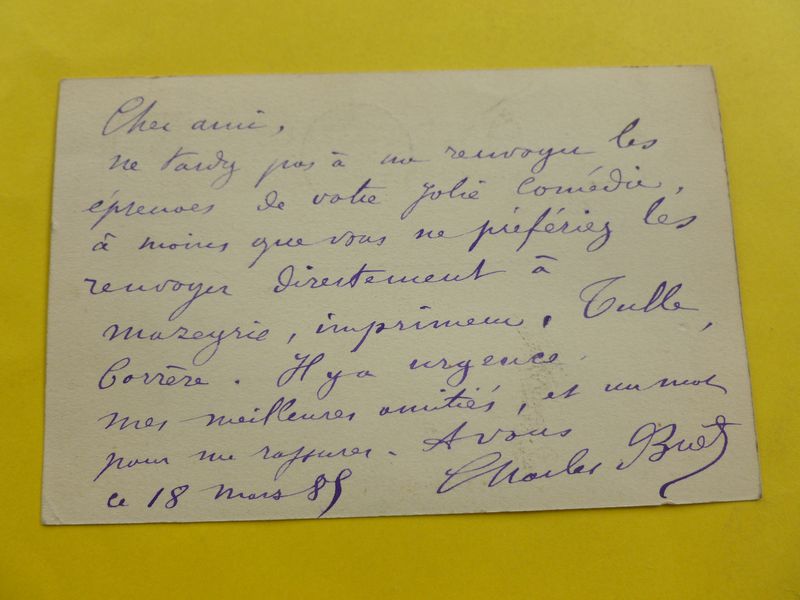 Cher ami,
ne tardez pas à me renvoyer les
épreuves de votre jolie comédie,
à moins que vous ne préfériez les
renvoyer directement à
Mazeyrie, imprimeur, Tulle,
Corrèze. Il y a urgence.
mes meilleures amitiés, et un mot
pour me rassurer. A vous
ce 18 mars 85 Charles Buet